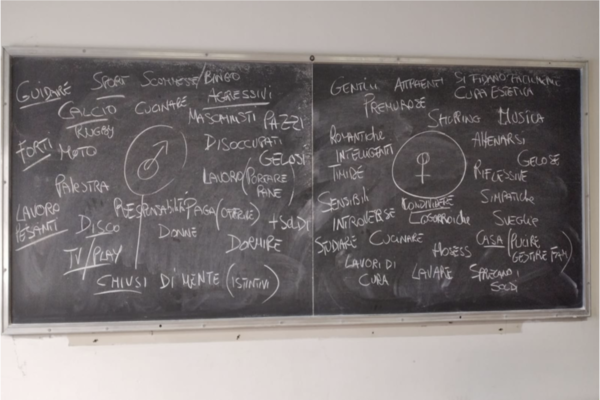 GUIDARE SPORT SCOMMESSE/BINGO
AGRESSIVI
CALCIO CUCINARE
RUGBY MASCHILISTI PAZZI
FORTI MOTO DISOCCUPATI
GELOSI
PALESTRA LAVORO (PORTARE PANE)
LAVORO PESANTI
RESPONSABILI PAGA (OFFRIRE) +SOLDI
DISCO DONNE
DORMIRE
TV/PLAY
CHIUSI DI MENTE (ISTINTIVI)
GENTILI ATTRAENTI SI FIDANO FACILMENTE
PREMUROSE CURA ESTETICA
SHOPING MUSICA
ROMANTICHE ALLENARSI
INTELLIGENTI GELOSE
TIMIDE RIFLESSIVE
SENSIBILI CONDIVIDERE SIMPATICHE
INTROVERSE LOGORROICHE SVEGLIE
STUDIARE CUCINARE HOSTESS CASA (PULIRE
GESTIRE FAM)
LAVORI DI CURA LAVARE SPRECANO SOLDI